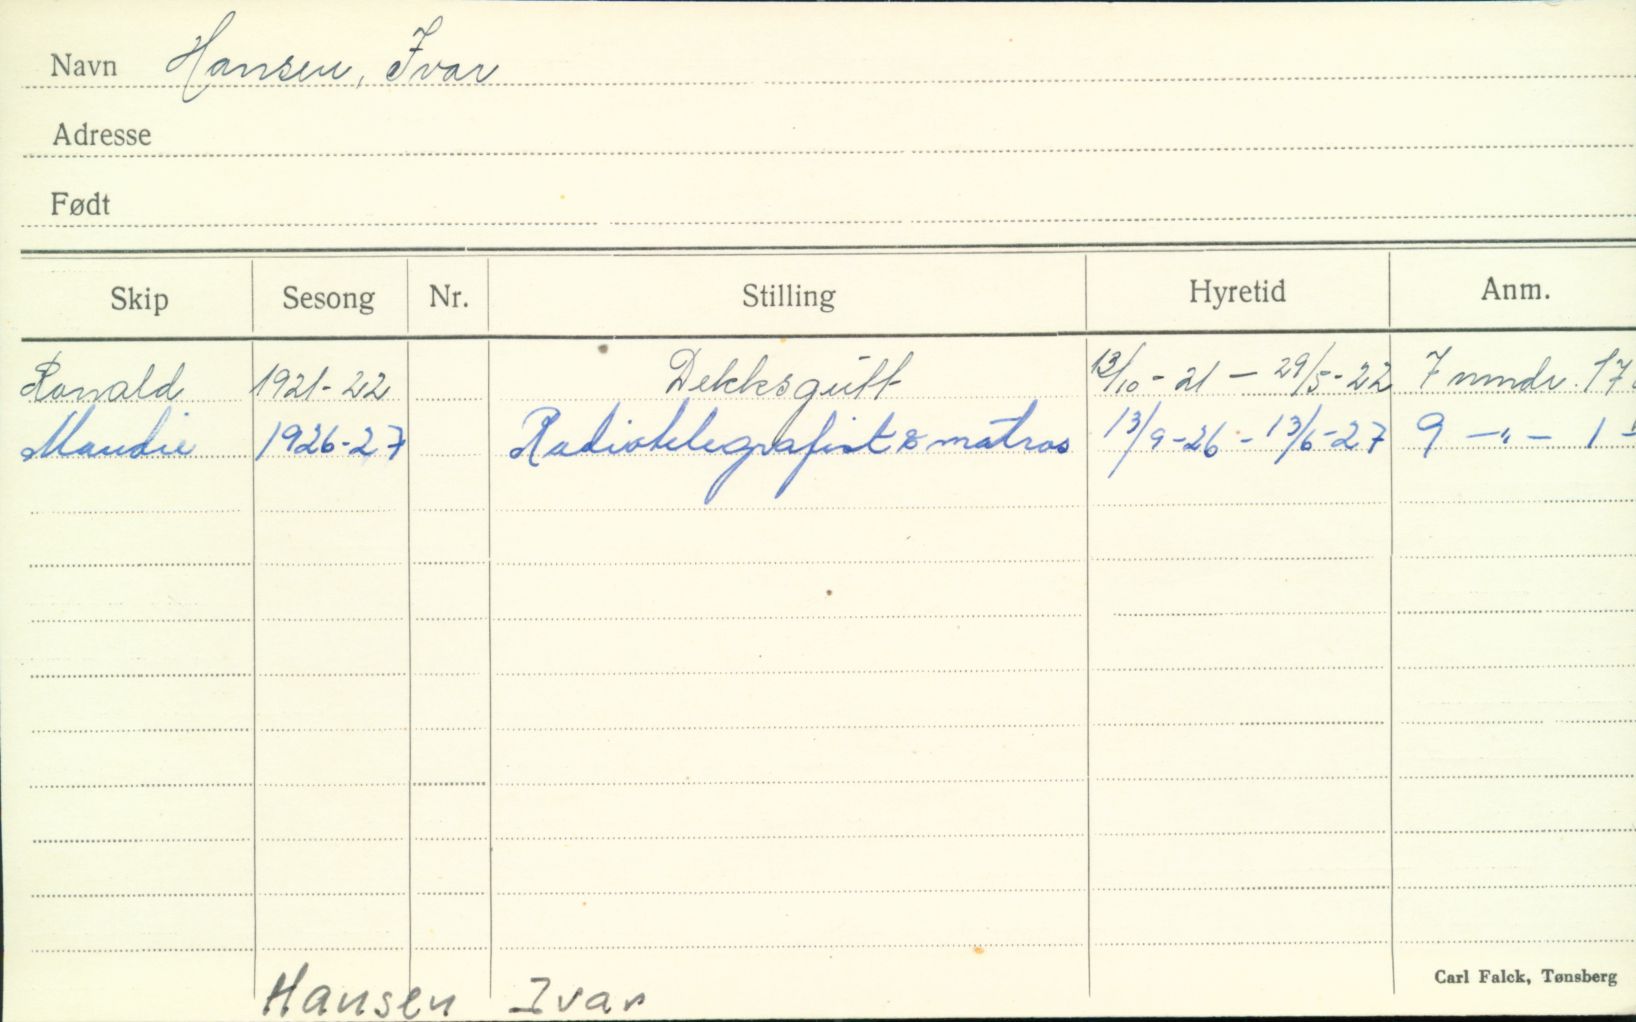 Navn Hansen, Ivar
Adresse
Født
Skip Sesong Nr. Stilling Hyretid Anm.
Ronald 1921-22 Dekksgutt 13/10-21 — 29/5-22 7 mndr. 17
Maudie 1926-27 Radiotelegrafist & matros 13/9-26 - 13/6-27 9 —"— 1
Hansen Ivar
Carl Falck, Tønsberg